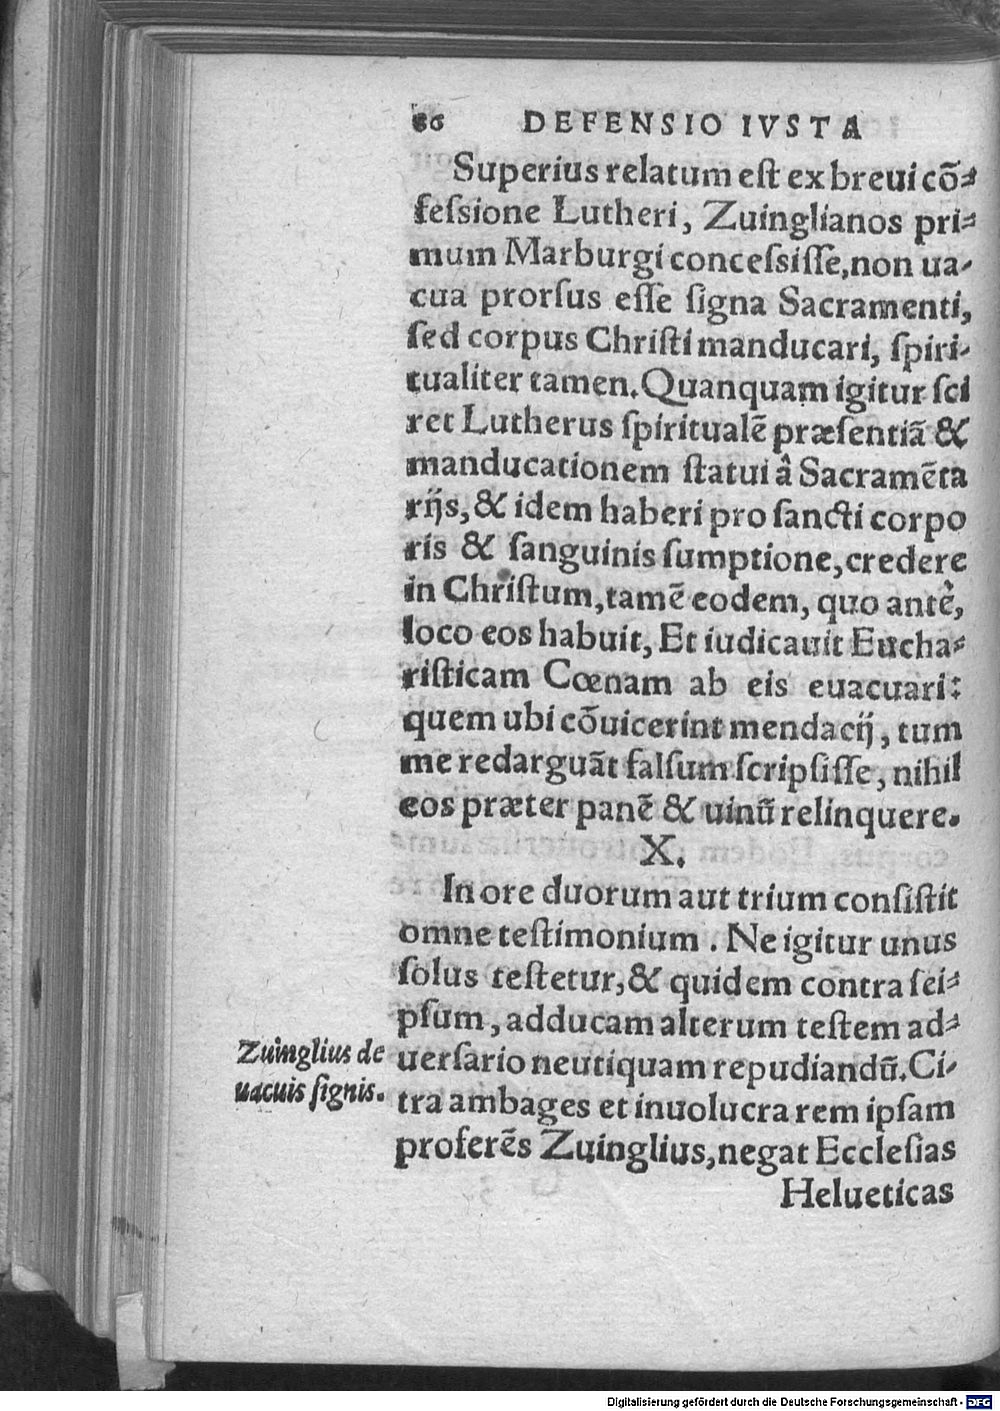 86 DEFENSIO IVSTA
Superius relatum est ex breui cõ⸗
feſsione Lutheri, Zuinglianos pri⸗
mum Marburgi conceſsiſſe, non ua⸗
cua prorſus eſſe ſigna Sacramenti,
ſed corpus Chriſti manducari, ſpiri⸗
tualiter tamen. Quanquam igitur ſci
ret Lutherus ſpiritualẽ præſentiã &
manducationem ſtatui â Sacramẽta
rijs, & idem haberi pro ſancti corpo
ris & ſanguinis ſumptione, credere
in Chriſtum, tamẽ eodem, quo antè,
loco eos habuit, Et iudicauit Eucha⸗
riſticam Cœnam ab eis euacuari:
quem ubi cõuicerint mendacij, tum
me redarguãt falſum ſcripſiſſe, nihil
eos præter panẽ & uinũ relinquere.
X.
In ore duorum aut trium conſiſtit
omne teſtimonium. Ne igitur unus
ſolus teſtetur, & quidem contra ſei⸗
pſum, adducam alterum teſtem ad⸗
uerſario neutiquam repudiandũ. Ci⸗
tra ambages et inuolucra rem ipſam
proferẽs Zuinglius, negat Eccleſias
Helueticas
Zuinglius de
uacuis ſignis.
Digitalisierung gefördert durch die Deutsche Forschungsgemeinschaft - DFG